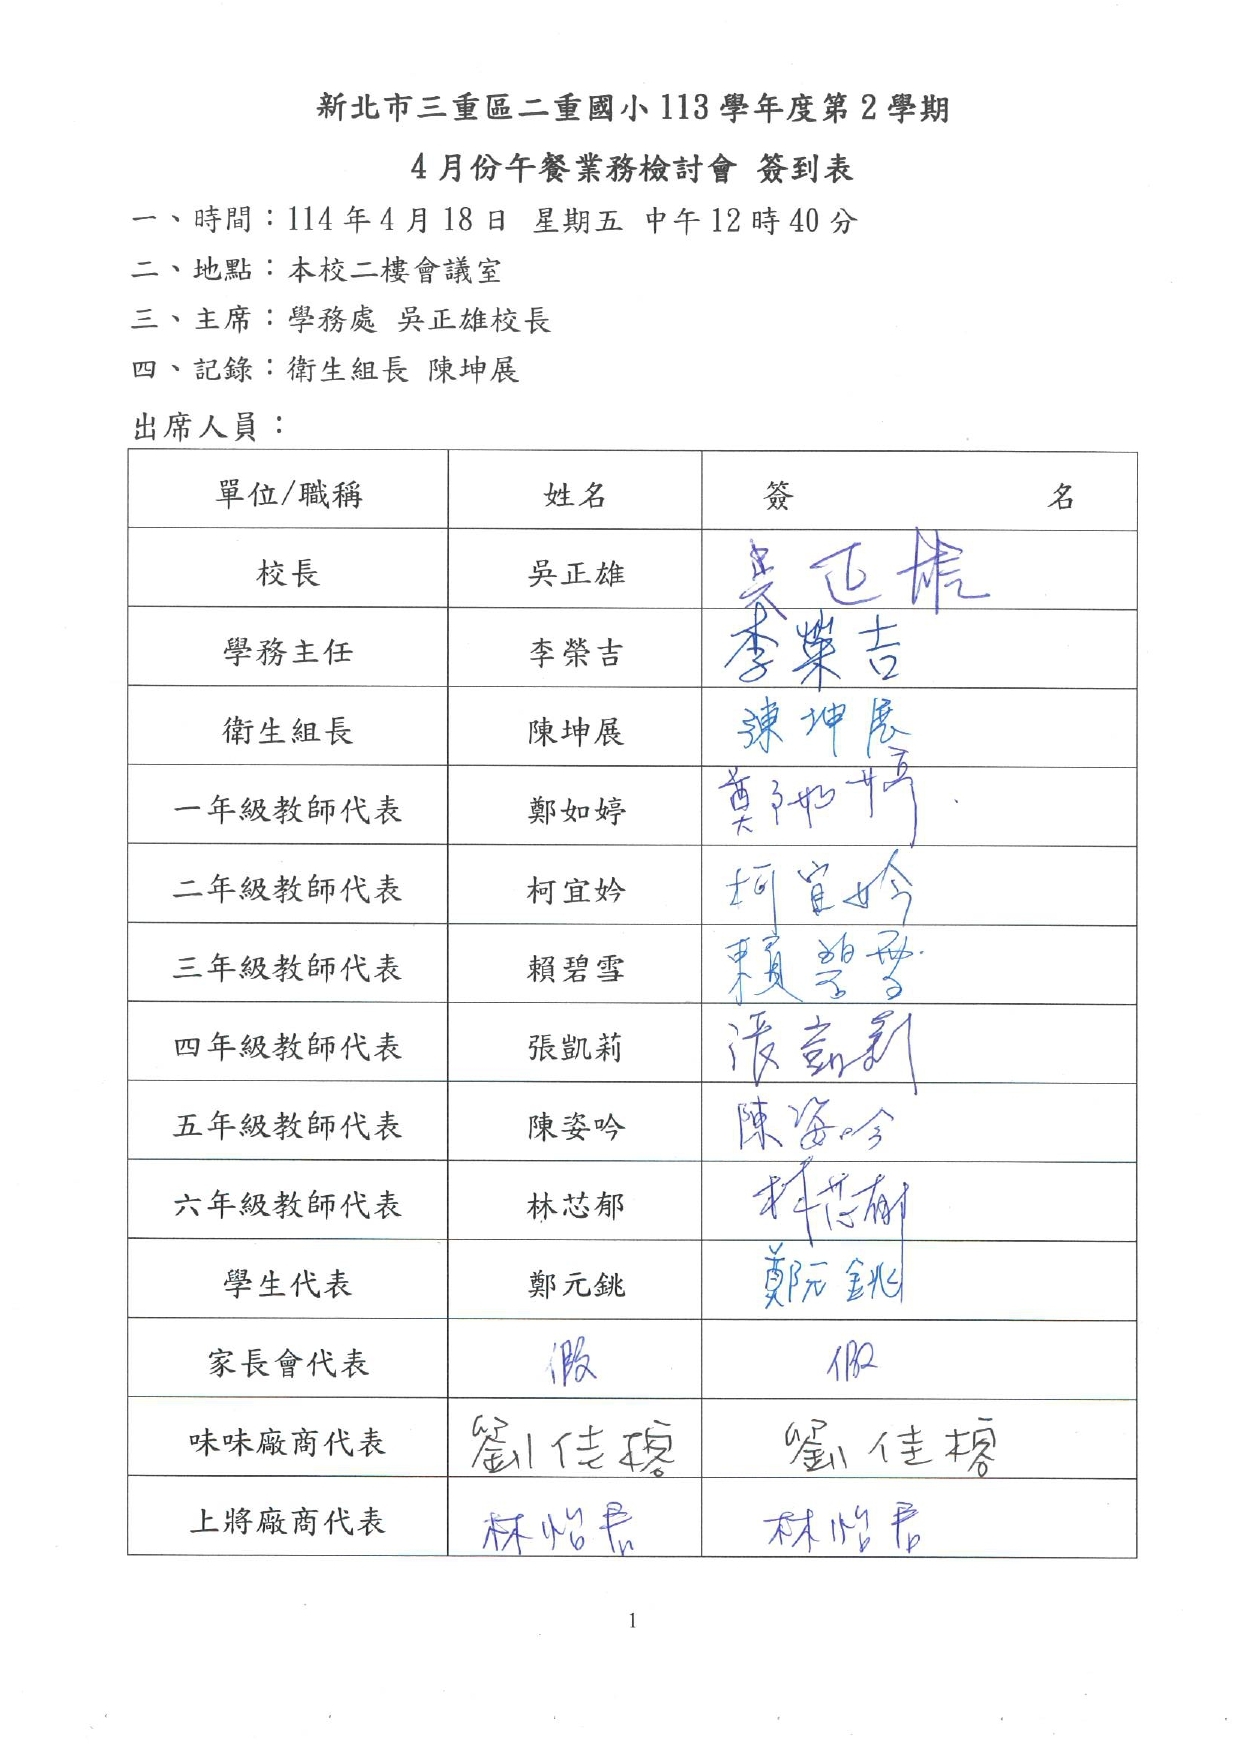 新北市三重區二重國小113學年度第2學期
4月份午餐業務檢討會 簽到表
一、時間：114年4月18日 星期五 中午12時40分
二、地點：本校二樓會議室
三、主席：學務處 吳正雄校長
四、記錄：衛生組長 陳坤展
出席人員：
單位/職稱 姓名 簽 名
校長 吳正雄 吳正雄
學務主任 李榮吉 李榮吉
衛生組長 陳坤展 陳坤展
一年級教師代表 鄭如婷 鄭如婷
二年級教師代表 柯宜妗 柯宜妗
三年級教師代表 賴碧雪 賴碧雪
四年級教師代表 張凱莉 張凱莉
五年級教師代表 陳姿吟 陳姿吟
六年級教師代表 林芯郁 林芯郁
學生代表 鄭元銚 鄭元銚
家長會代表 假 假
味味廠商代表 劉佳榕 劉佳榕
上將廠商代表 林怡君 林怡君
1